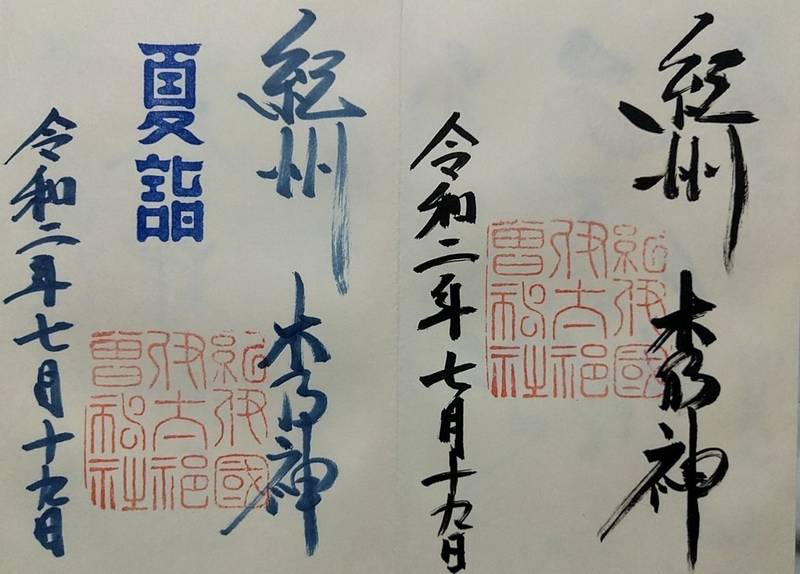 紀州
木乃神
紀伊國
伊太祁
曾神社
令和二年七月十九日
紀州
木乃神
夏詣
紀伊國
伊太祁
曾神社
令和二年七月十九日